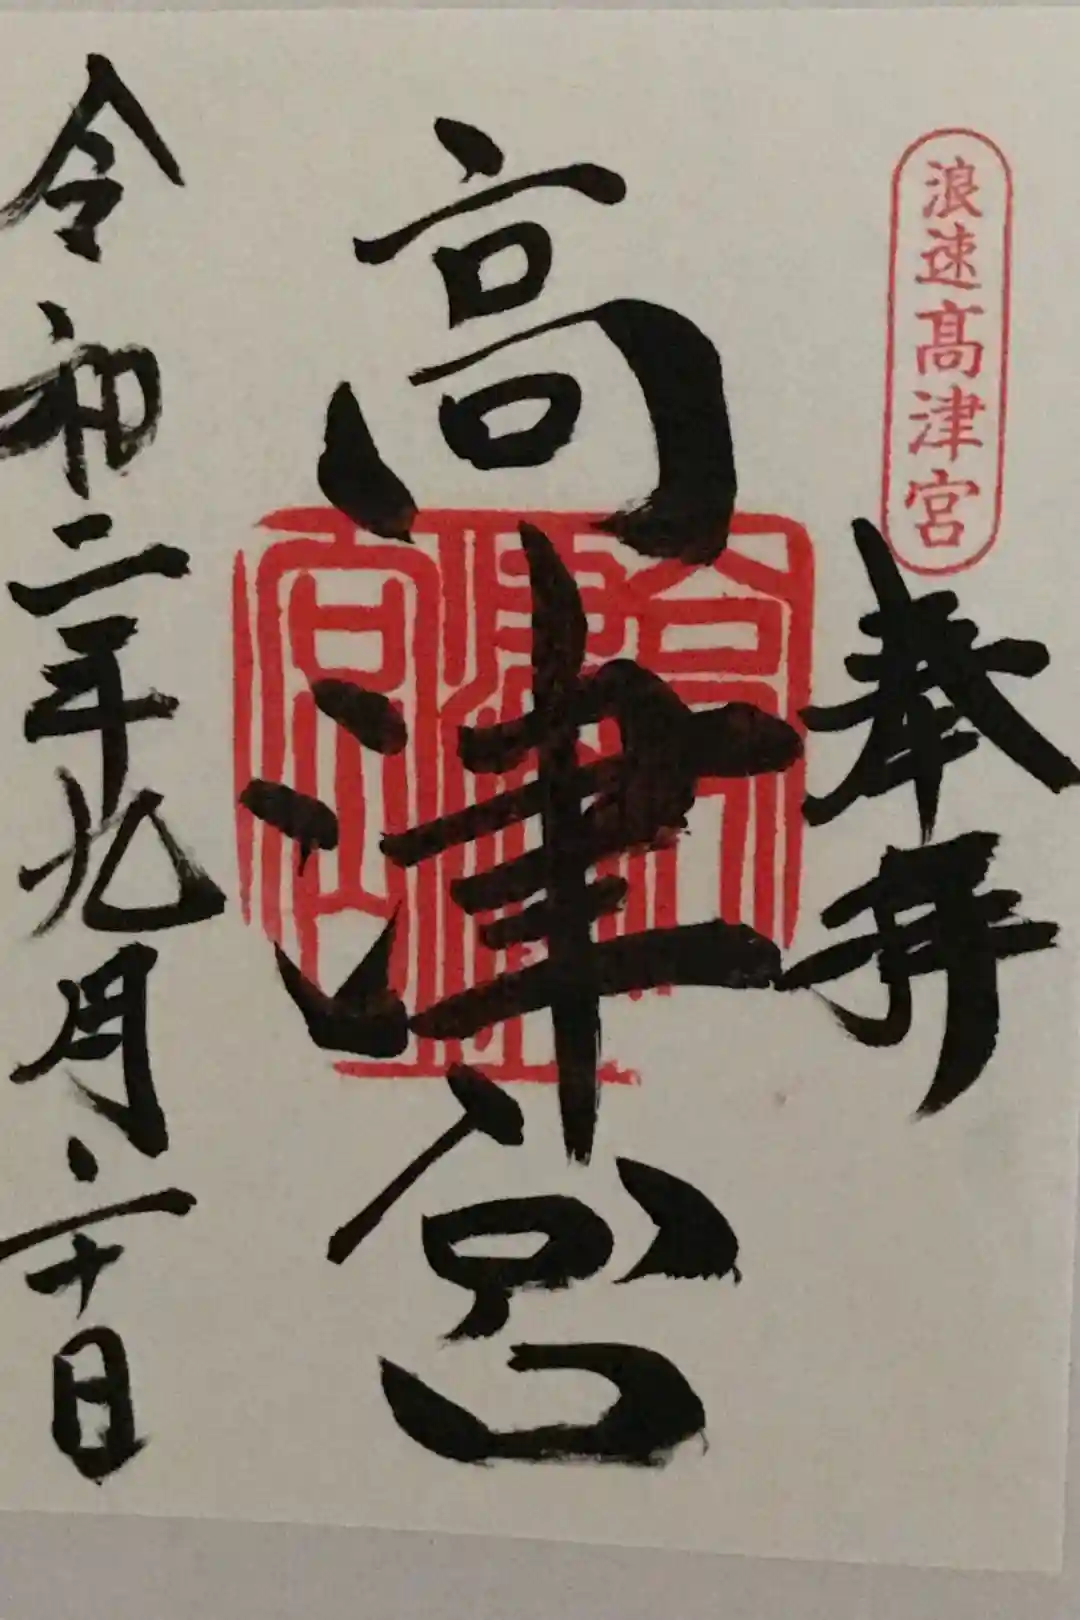 浪速高津宮
奉拝
高津宮
高津宮
令和二年九月二十日